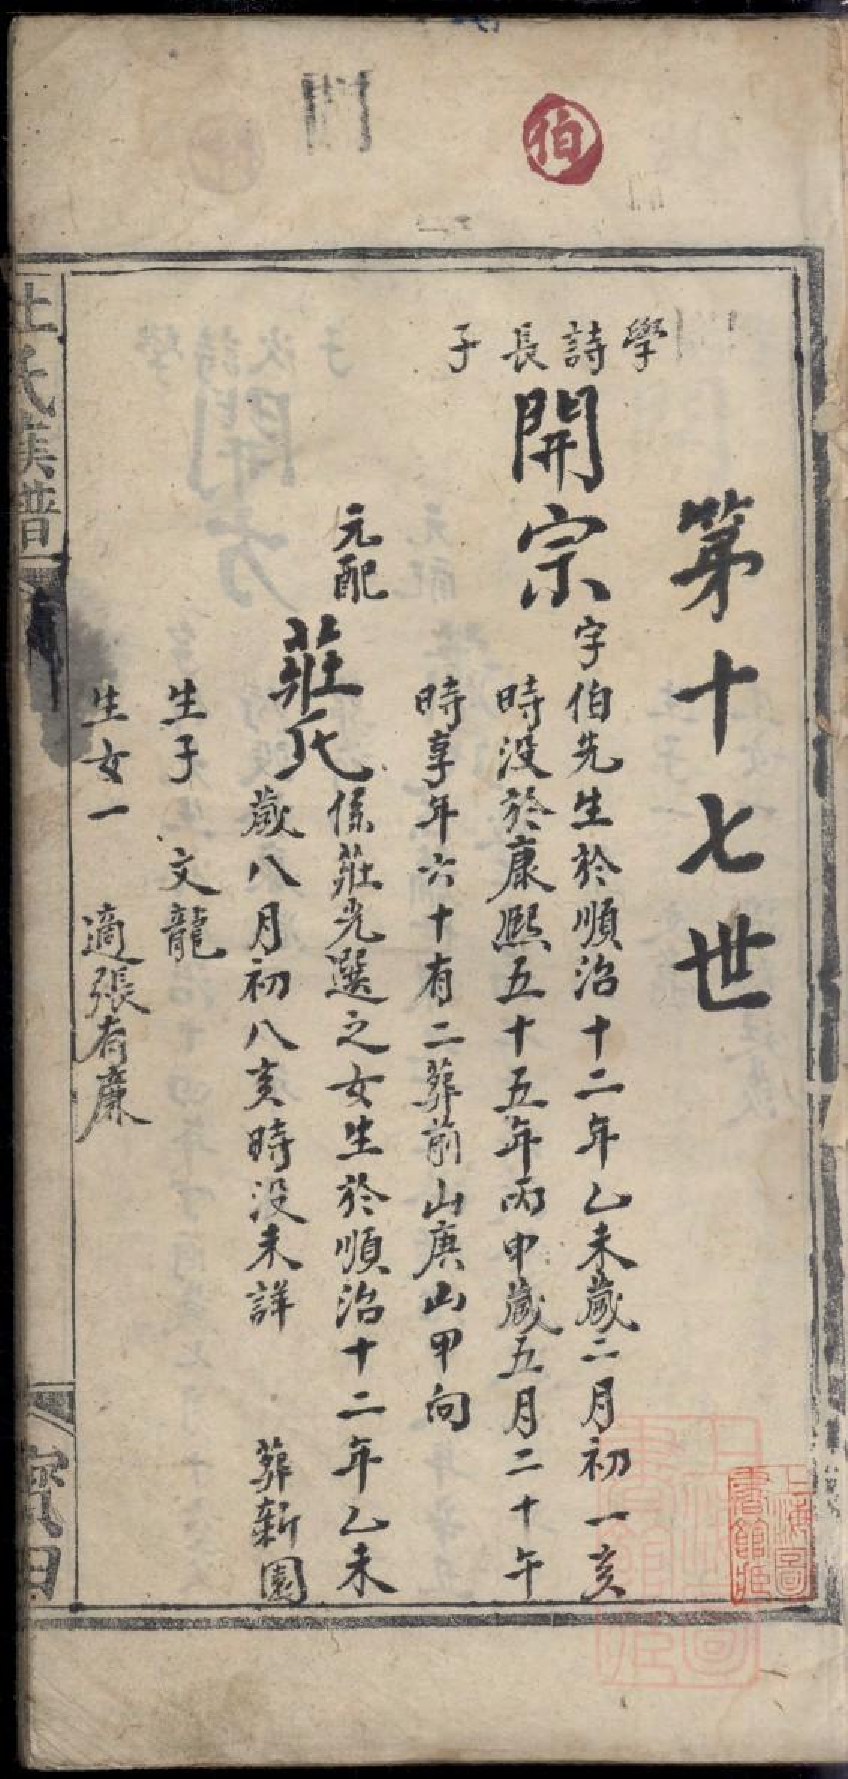 伯
第十七世
學詩長子
開宗
字伯先生於順治十二年乙未歲二月初一亥
時没於康熙五十五年丙申歲五月二十午
時享年六十有二葬前山庚山甲向
元配
莊氏
係莊光選之女生於順治十二年乙未
歲八月初八亥時没未詳 葬新園
生子 文龍
生女一 適張有廉
氏族譜
上海圖書館藏